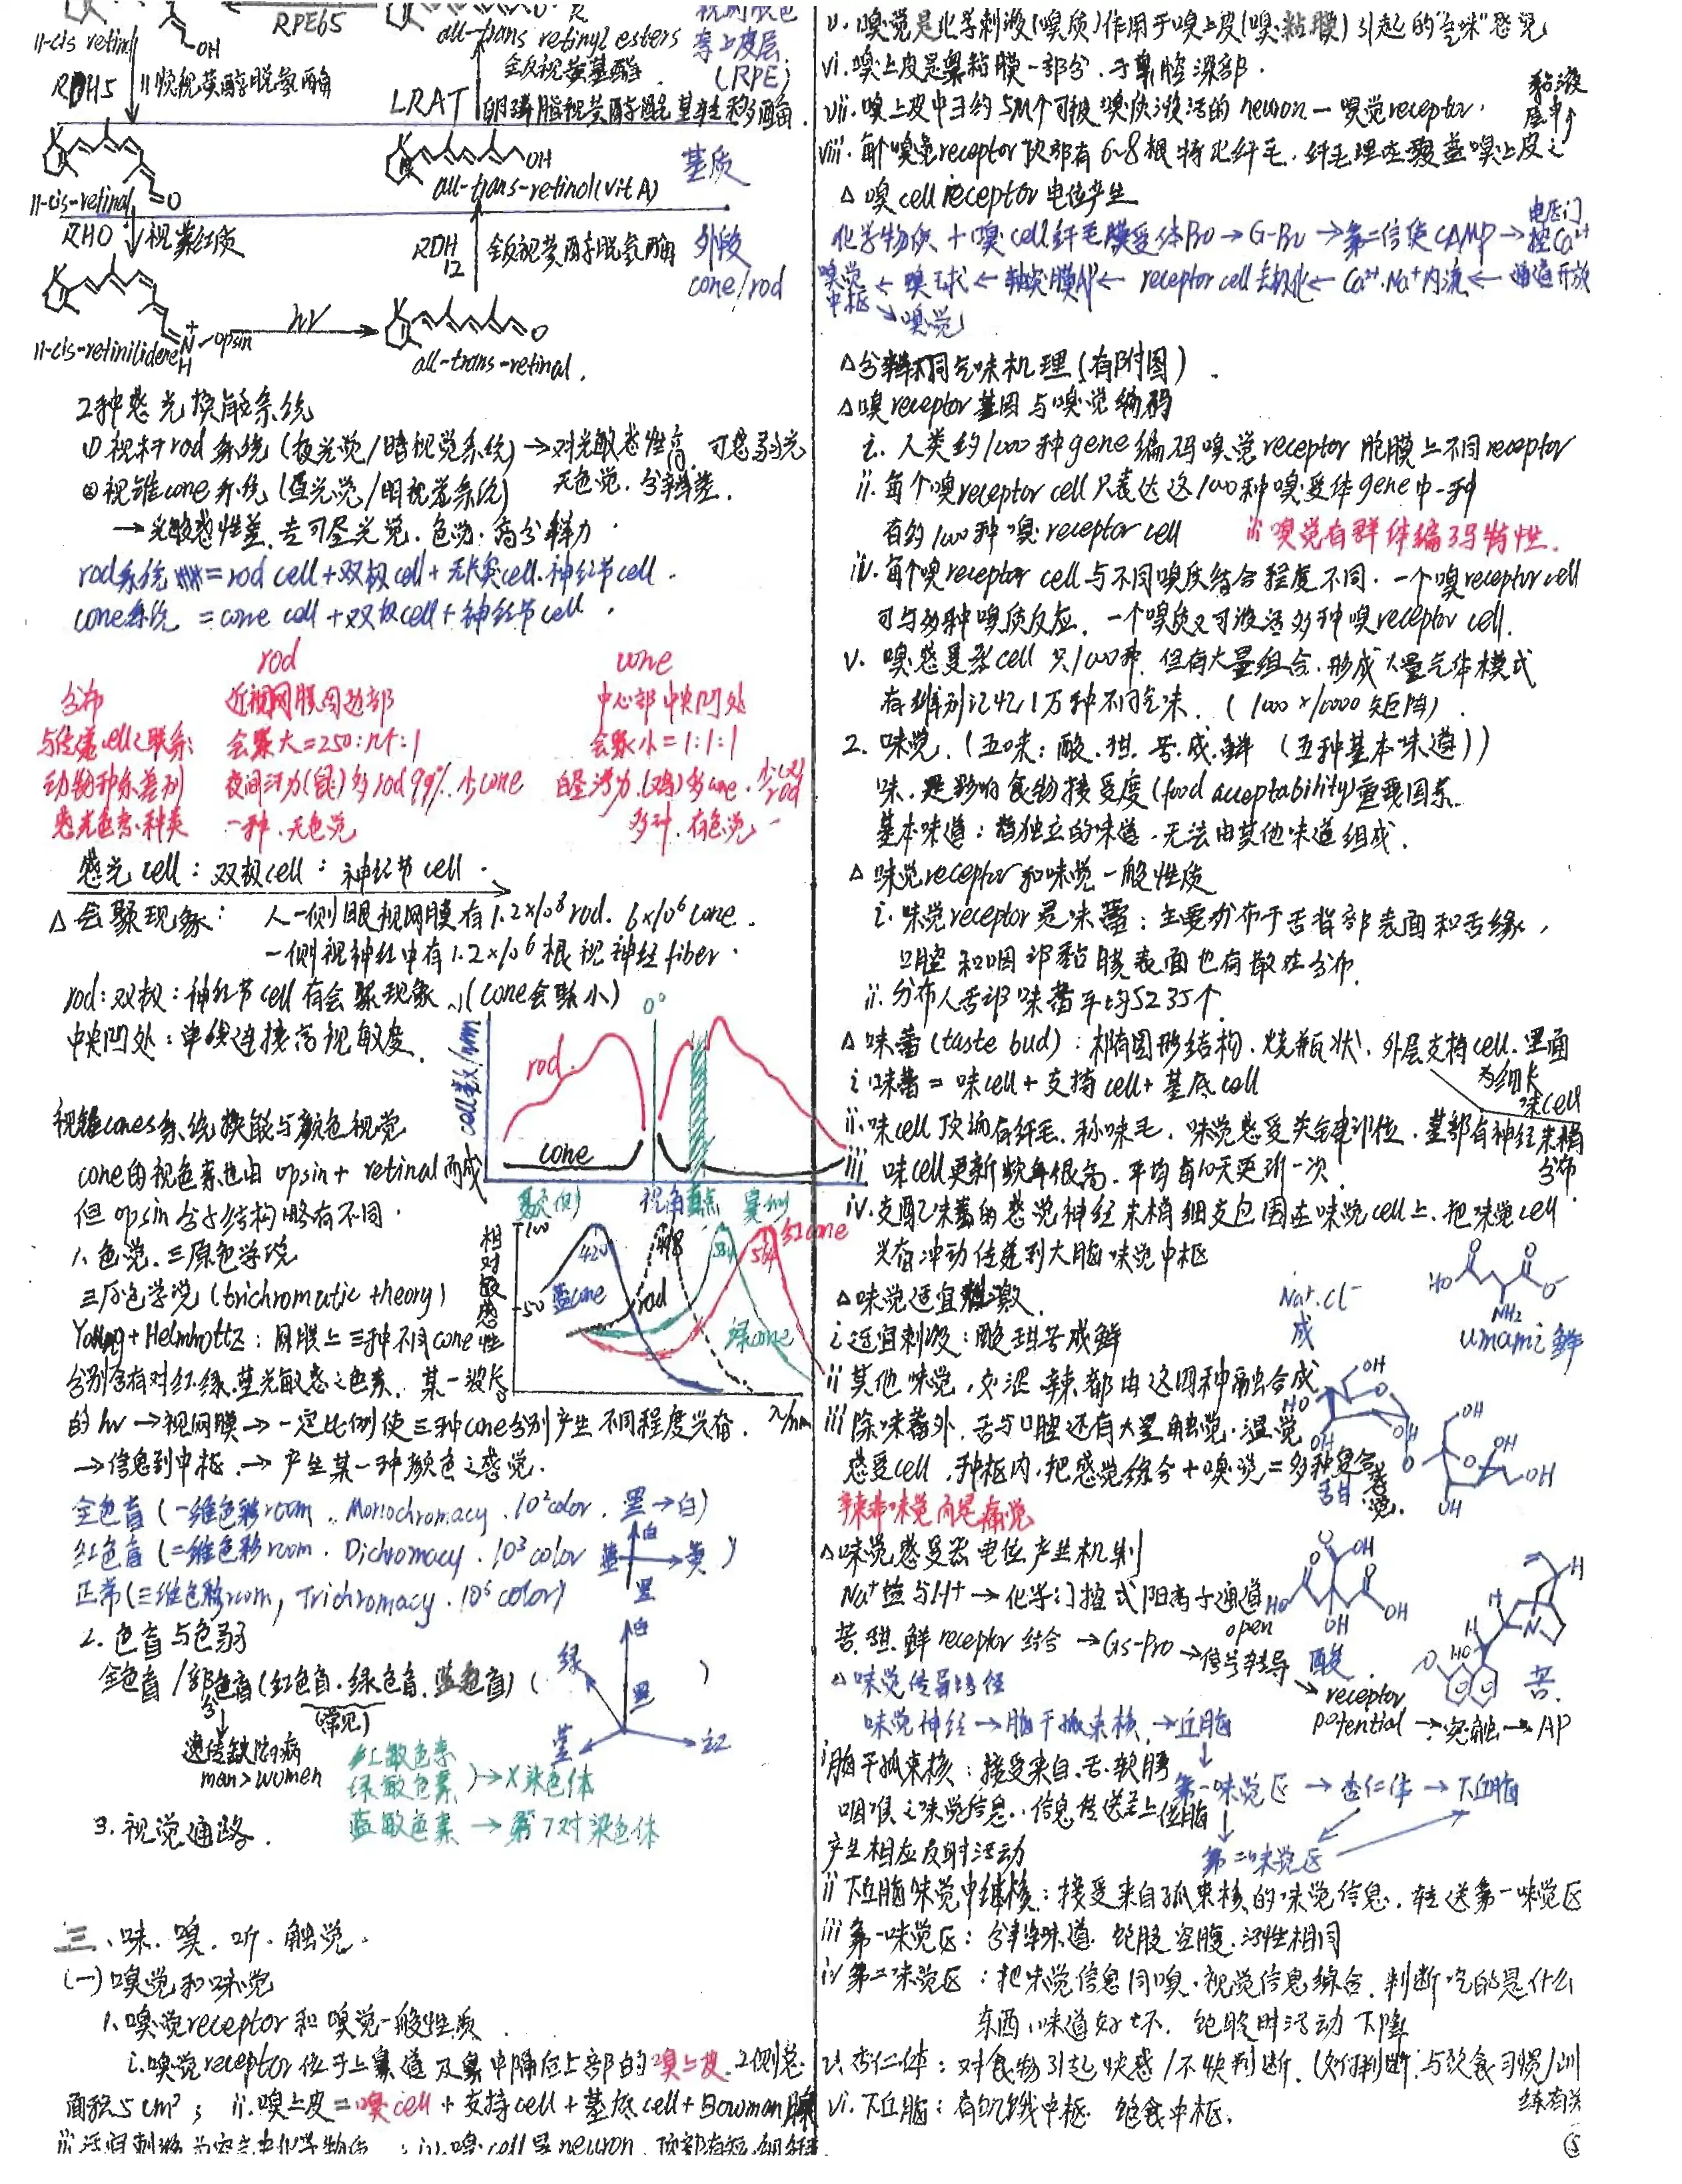 RPE65
11-cis retinol
OH
all-trans retinyl esters
视网膜色
素上皮层
(RPE)
RDH5
11顺视黄醇脱氢酶
全反视黄基酯
LRAT
卵磷脂视黄醇酰基转移酶
11-cis-retinal
O
OH
all-trans-retinol(vit A)
基质
RHO
视紫红质
RDH
12
全反视黄醇脱氢酶
外段
cone/rod
11-cis-retinilidene
opsin
hν
all-trans-retinal.
2种感光换能系统
① 视杆rod系统 (夜光觉/暗视觉系统) → 对光敏感性高, 可感弱光
无色觉. 分辨差.
② 视锥cone系统 (昼光觉/明视觉系统)
→ 光敏感性差, 专司昼光觉. 色觉. 高分辨力.
rod系统 = rod cell + 双极cell + 无长突cell. 神经节cell.
cone系统 = cone cell + 双极cell + 神经节cell.
rod cone
分布 近视网膜周边部 中心部 中央凹处
与传递cell之联系: 会聚大=250:n4:1 会聚小=1:1:1
动物种系差别 夜间活力(鼠)多rod 99%. 少cone 白昼活力(鸡)多cone. 少rod
感光色素种类 一种. 无色觉 多种. 有色觉
感光cell : 双极cell : 神经节cell.
△ 会聚现象: 人一侧眼视网膜有1.2×10⁸ rod. 6×10⁶ cone.
一侧视神经中有1.2×10⁶根视神经fiber.
rod:双极:神经节cell有会聚现象, (cone会聚小)
中央凹处: 单线连接高视敏度.
cell数/mm
0°
rod
cone
颞侧 视角 盲点 鼻侧
视锥cones系统换能与颜色视觉
cone的视色素也由opsin + retinal而成
但opsin分子结构略有不同.
1. 色觉. 三原色学说
三原色学说 (trichromatic theory)
Young + Helmholtz: 网膜上三种不同cone
分别含有对红.绿.蓝光敏感之色素. 某一波长
的hν → 视网膜 → 一定比例使三种cone分别产生不同程度兴奋.
→ 信息到中枢. → 产生某一种颜色之感觉.
相对敏感性
100
50
420
498
534
564
红cone
蓝cone
rod
绿cone
λ/nm
全色盲 (一维色彩room. Monochromacy. 10²color. 黑→白)
红色盲 (二维色彩room. Dichromacy. 10³ color 白 蓝 黄 黑)
正常 (三维色彩room, Trichromacy. 10⁶ color)
2. 色盲与色弱
全色盲/部分色盲 (红色盲. 绿色盲. 蓝色盲) ( )
(常见)
遗传缺陷病
man>women
红敏色素
绿敏色素 → X染色体
蓝敏色素 → 第7对染色体
白
绿
黑
蓝
红
3. 视觉通路.
三、味. 嗅. 听. 触觉.
(一) 嗅觉和味觉
1. 嗅觉receptor和嗅觉一般性质
i. 嗅觉receptor位于上鼻道及鼻中隔后上部的嗅上皮. 2侧总
面积5cm²; ii. 嗅上皮=嗅cell + 支持cell + 基底cell + Bowman腺
iii 适宜刺激为空气中化学物质; iv. 嗅cell是neuron, 顶部有短细纤
v. 嗅觉是化学刺激(嗅质)作用于嗅上皮(嗅粘膜)引起的"气味"感觉
vi. 嗅上皮是鼻粘膜一部分. 于鼻腔深部.
vii. 嗅上皮中有约5M个可被嗅质激活的neuron — 嗅觉receptor.
viii. 每个嗅觉receptor顶部有6~8根特化纤毛. 纤毛埋在覆盖嗅上皮之
黏液
层中
△ 嗅cell receptor电位产生
化学物质 + 嗅cell纤毛膜受体Pro → G-Pro → 第二信使cAMP → 电压门控Ca²⁺
通道开放 → Ca²⁺.Na⁺内流 → receptor cell去极化 → 轴突膜AP → 嗅球 → 嗅觉中枢 → 嗅觉
△ 分辨不同气味机理 (有附图).
△ 嗅receptor基因与嗅觉编码
i. 人类约1000种gene编码嗅觉receptor胞膜上不同receptor
ii. 每个嗅receptor cell只表达这1000种嗅受体gene中一种
有约1000种嗅receptor cell
iii 嗅觉有群体编码特性.
iv. 每个嗅receptor cell与不同嗅质结合程度不同. 一个嗅receptor cell
可与多种嗅质反应. 一个嗅质又可激活多种嗅receptor cell.
v. 嗅感受器cell只1000种. 但有大量组合. 形成大量气体模式
有辨别记忆1万种不同气味. (1000×10000矩阵).
2. 味觉. (五味: 酸.甜.苦.咸.鲜 (五种基本味道))
味. 是影响食物接受度(food acceptability)重要因素.
基本味道: 指独立的味道. 无法由其他味道组成.
△ 味觉receptor和味觉一般性质
i. 味觉receptor是味蕾: 主要分布于舌背部表面和舌缘,
口腔和咽部黏膜表面也有散在分布.
ii. 分布人舌部味蕾平均5235个.
△ 味蕾(taste bud): 椭圆形结构. 烧瓶状. 外层支持cell. 里面
为细长
味cell
i 味蕾 = 味cell + 支持cell + 基底cell
ii. 味cell顶端有纤毛. 称味毛. 味觉感受关键部位. 基部有神经末梢
分布
iii 味cell更新频率很高. 平均每10天更新一次
iv. 支配味蕾的感觉神经末梢细支包围在味觉cell上. 把味觉cell
兴奋冲动传递到大脑味觉中枢
△ 味觉适宜刺激.
i 适宜刺激: 酸甜苦咸鲜
Na⁺.Cl⁻
咸
NH₂
umami 鲜
ii 其他味觉. 如涩. 辣都由这四种融合成
iii 除味蕾外, 舌与口腔还有大量触觉. 温觉
感受cell. 中枢内. 把感觉综合+嗅觉=多种复合感觉.
辣非味觉而是痛觉
甜
△ 味觉感受器电位产生机制
Na⁺盐与H⁺ → 化学门控式阳离子通道
open
苦.甜.鲜receptor结合 → Gs-pro → 信号转导
receptor
potential → 突触 → AP
酸
苦.
△ 味觉传导路径
味觉神经 → 脑干孤束核 → 丘脑
第一味觉区 → 杏仁体 → 下丘脑
第二味觉区
i 脑干孤束核: 接受来自.舌.软腭
咽喉之味觉信息. 信息传送至上位脑
产生相应反射活动
ii 下丘脑味觉中继核: 接受来自孤束核的味觉信息. 转送第一味觉区
iii 第一味觉区: 分辨味道. 饱腹空腹. 活性相同
iv 第二味觉区: 把味觉信息同嗅.视觉信息综合. 判断吃的是什么
东西, 味道好坏. 饱腹时活动下降
v. 杏仁体: 对食物引起快感/不快判断. (如何判断.与饮食习惯/训
练有关
vi. 下丘脑: 有饥饿中枢. 饱食中枢.
⑤